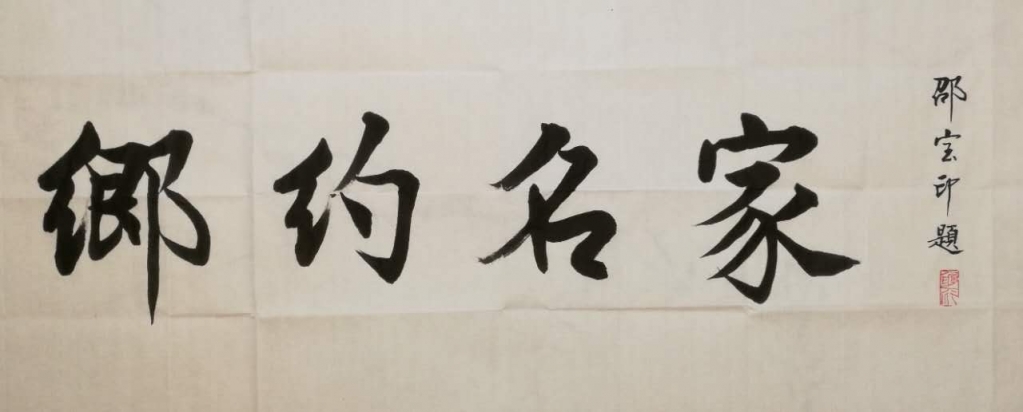 鄉约名家
邵宝印題